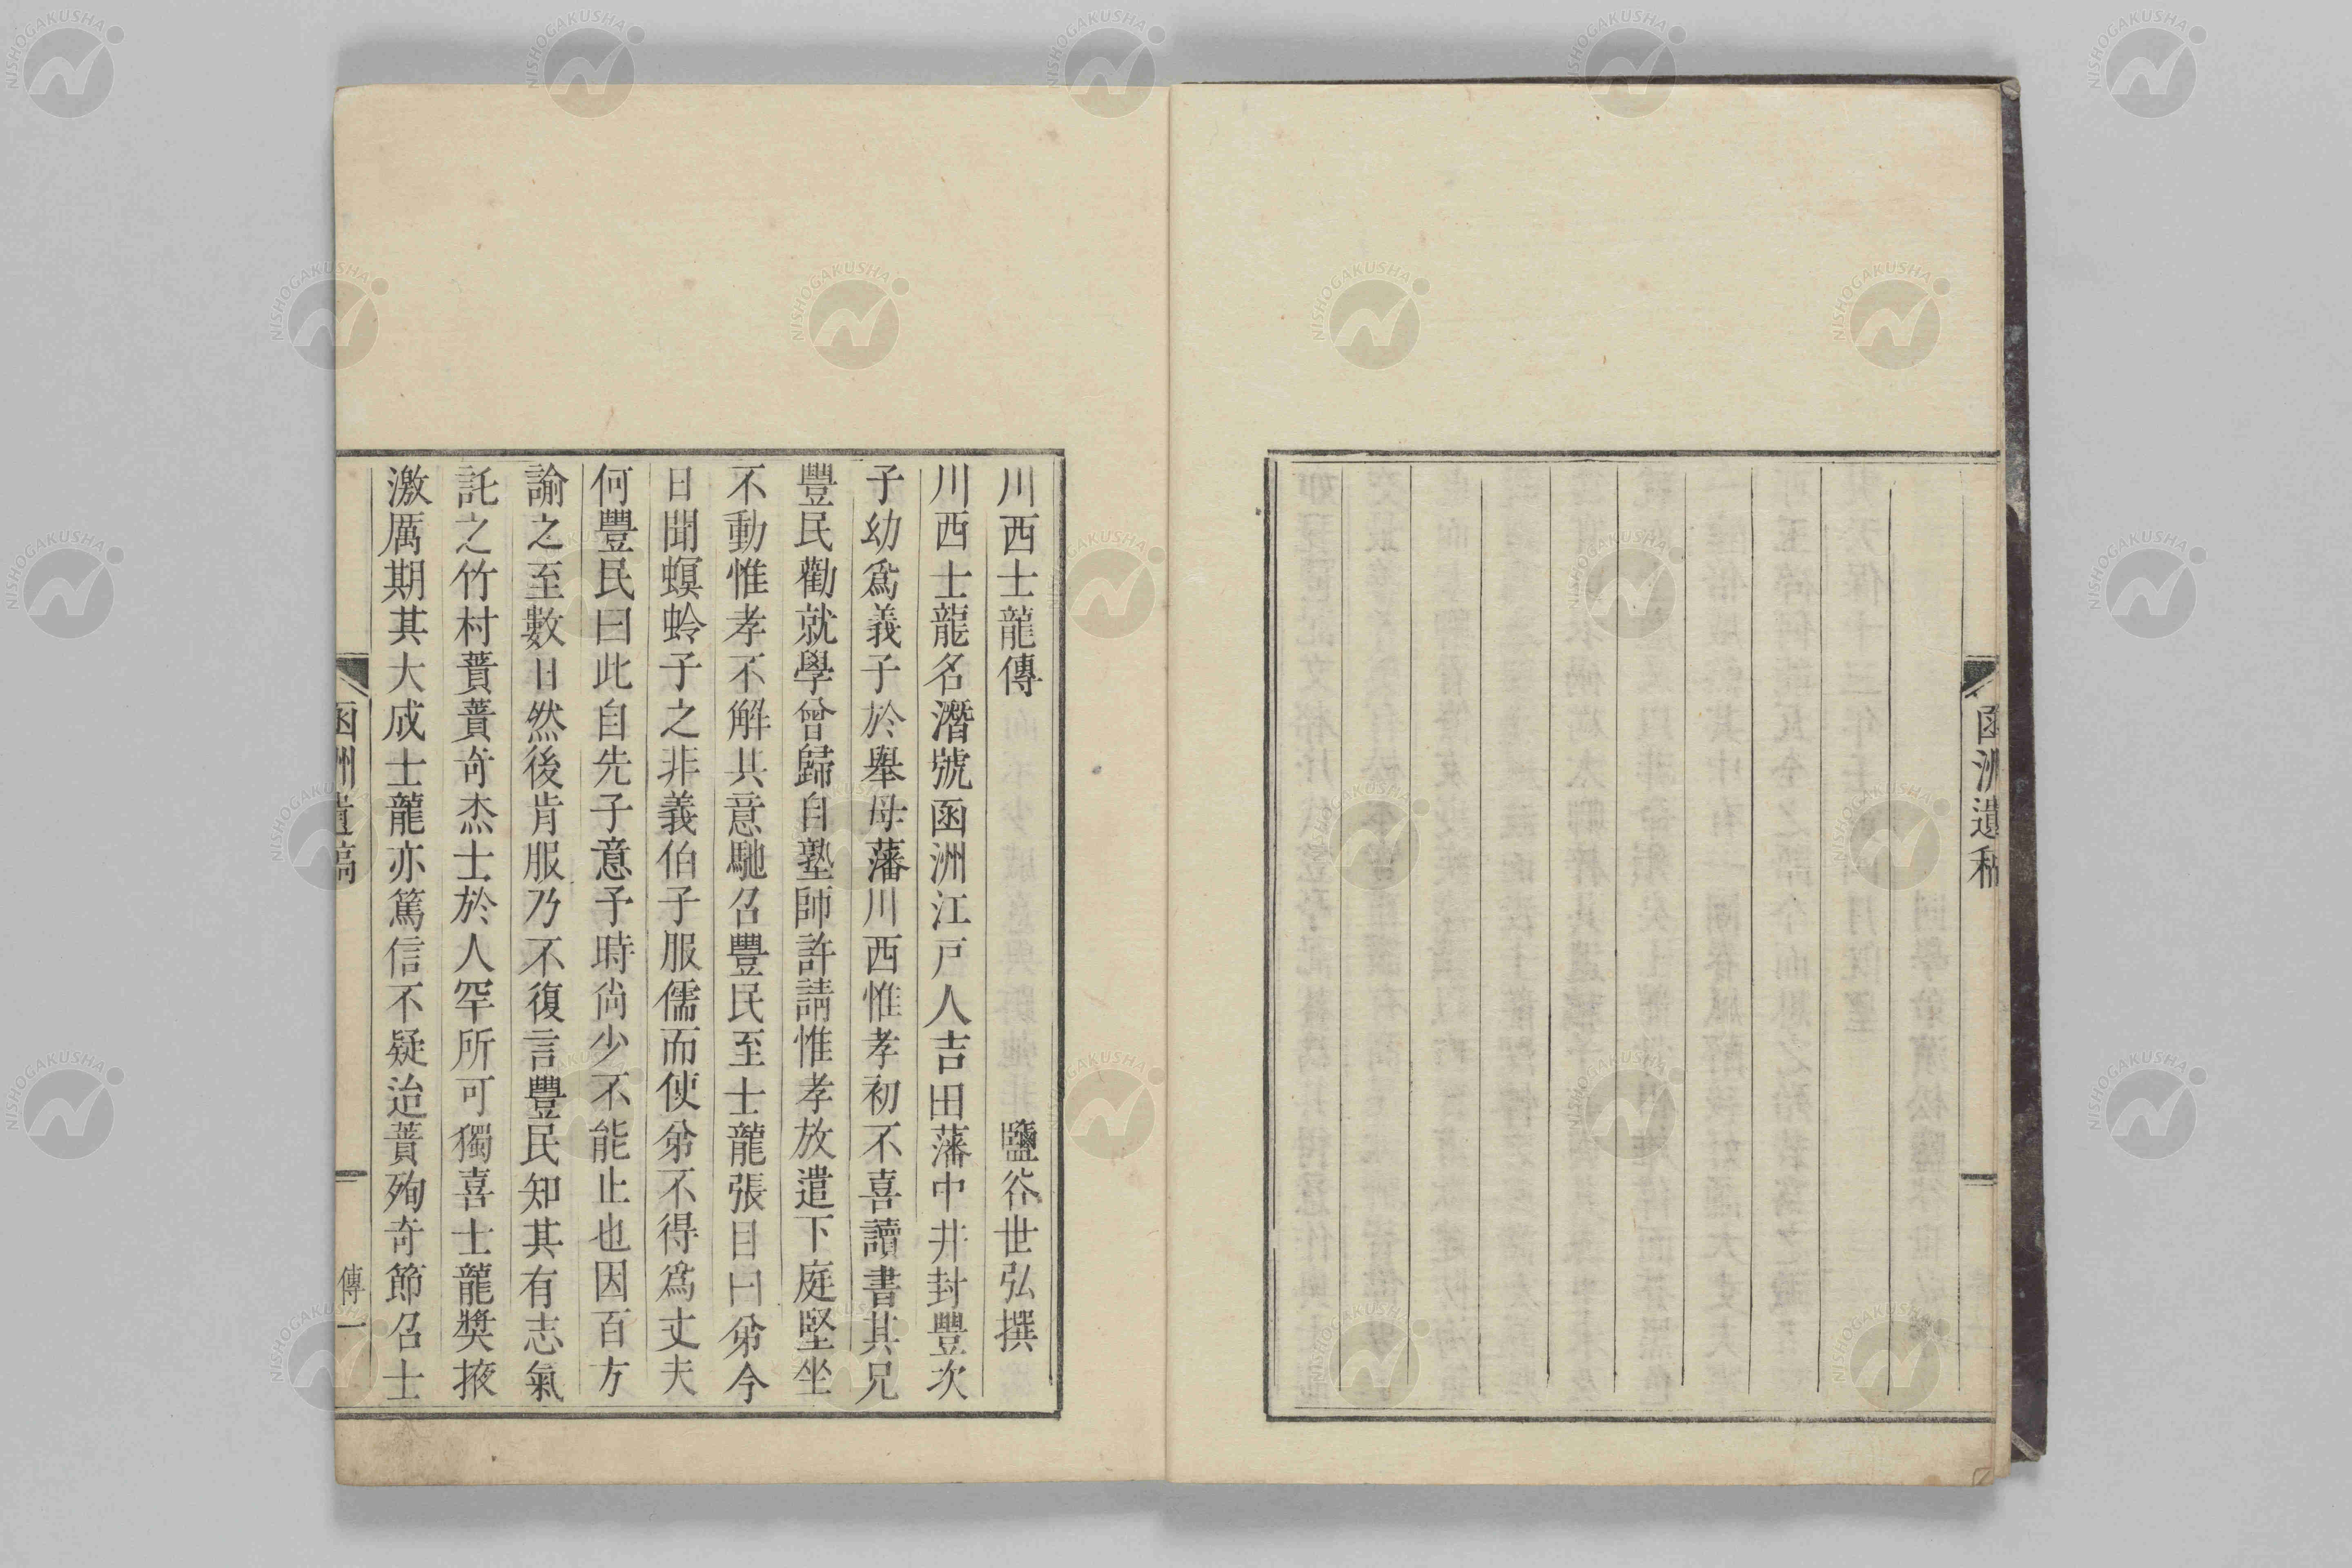 函洲遺稿
川西士龍傳 鹽谷世弘撰
川西士龍名潛號函洲江戸人吉田藩中井封豐次
子幼爲義子於舉母藩川西惟孝初不喜讀書其兄
豐民勸就學曾歸自塾師許請惟孝放遣下庭堅坐
不動惟孝不解其意馳召豐民至士龍張目曰弟今
日聞螟蛉子之非義伯子服儒而使弟不得爲丈夫
何豐民曰此自先子意予時尚少不能止也因百方
諭之至數日然後肯服乃不復言豐民知其有志氣
託之竹村蕡蕡奇杰士於人罕所可獨喜士龍奬掖
激厲期其大成士龍亦篤信不疑迨蕡殉奇節召士
函洲遺稿 傳 一
NISHOGAKUSHA